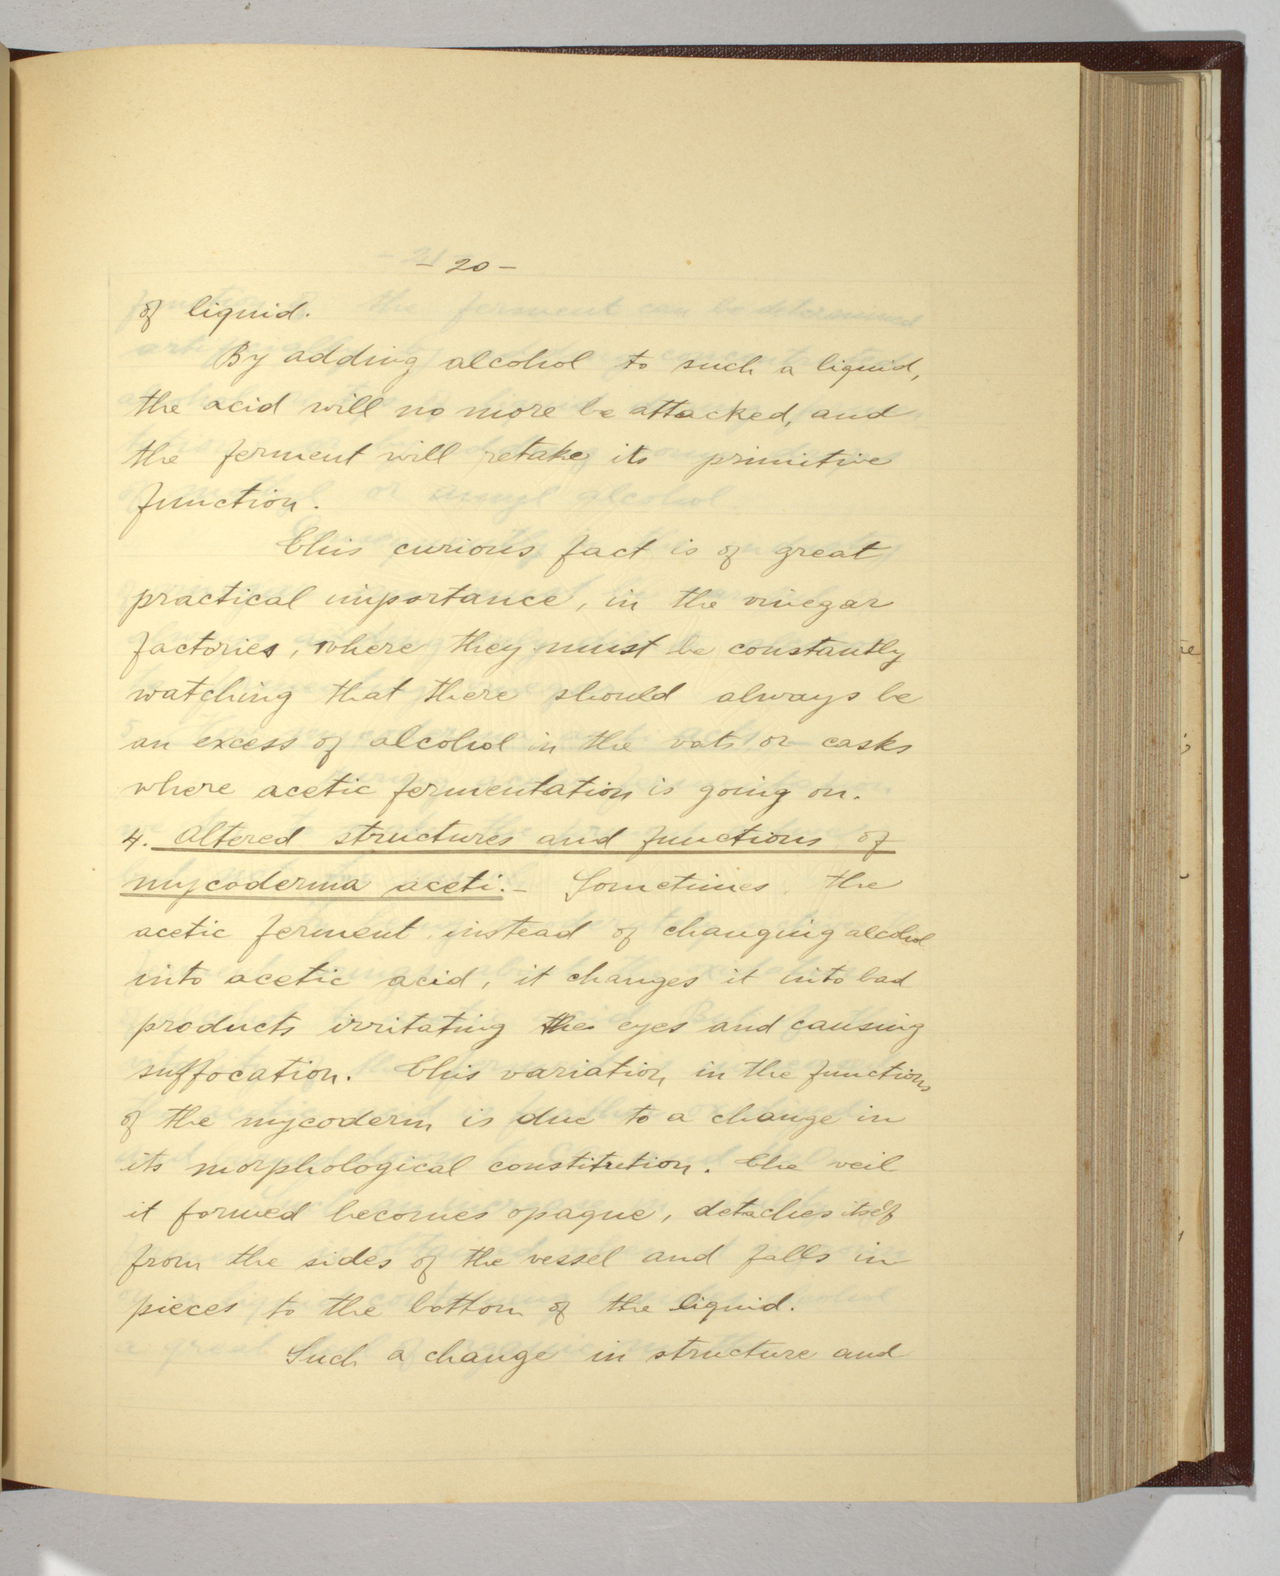 - 20 -
of liquid.
By adding alcohol to such a liquid,
the acid will no more be attacked, and
the ferment will retake its primitive
function.
This curious fact is of great
practical importance, in the vinegar
factories, where they must be constantly
watching that there should always be
an excess of alcohol in the vats or casks
where acetic fermentation is going on.
4. Altered structures and functions of
mycoderma aceti. - Sometimes the
acetic ferment, instead of changing alcohol
into acetic acid, it changes it into bad
products irritating the eyes and causing
suffocation. This variation in the functions
of the mycoderm is due to a change in
its morphological constitution. The veil
it formed becomes opaque, detaches itself
from the sides of the vessel and falls in
pieces to the bottom of the liquid.
Such a change in structure and